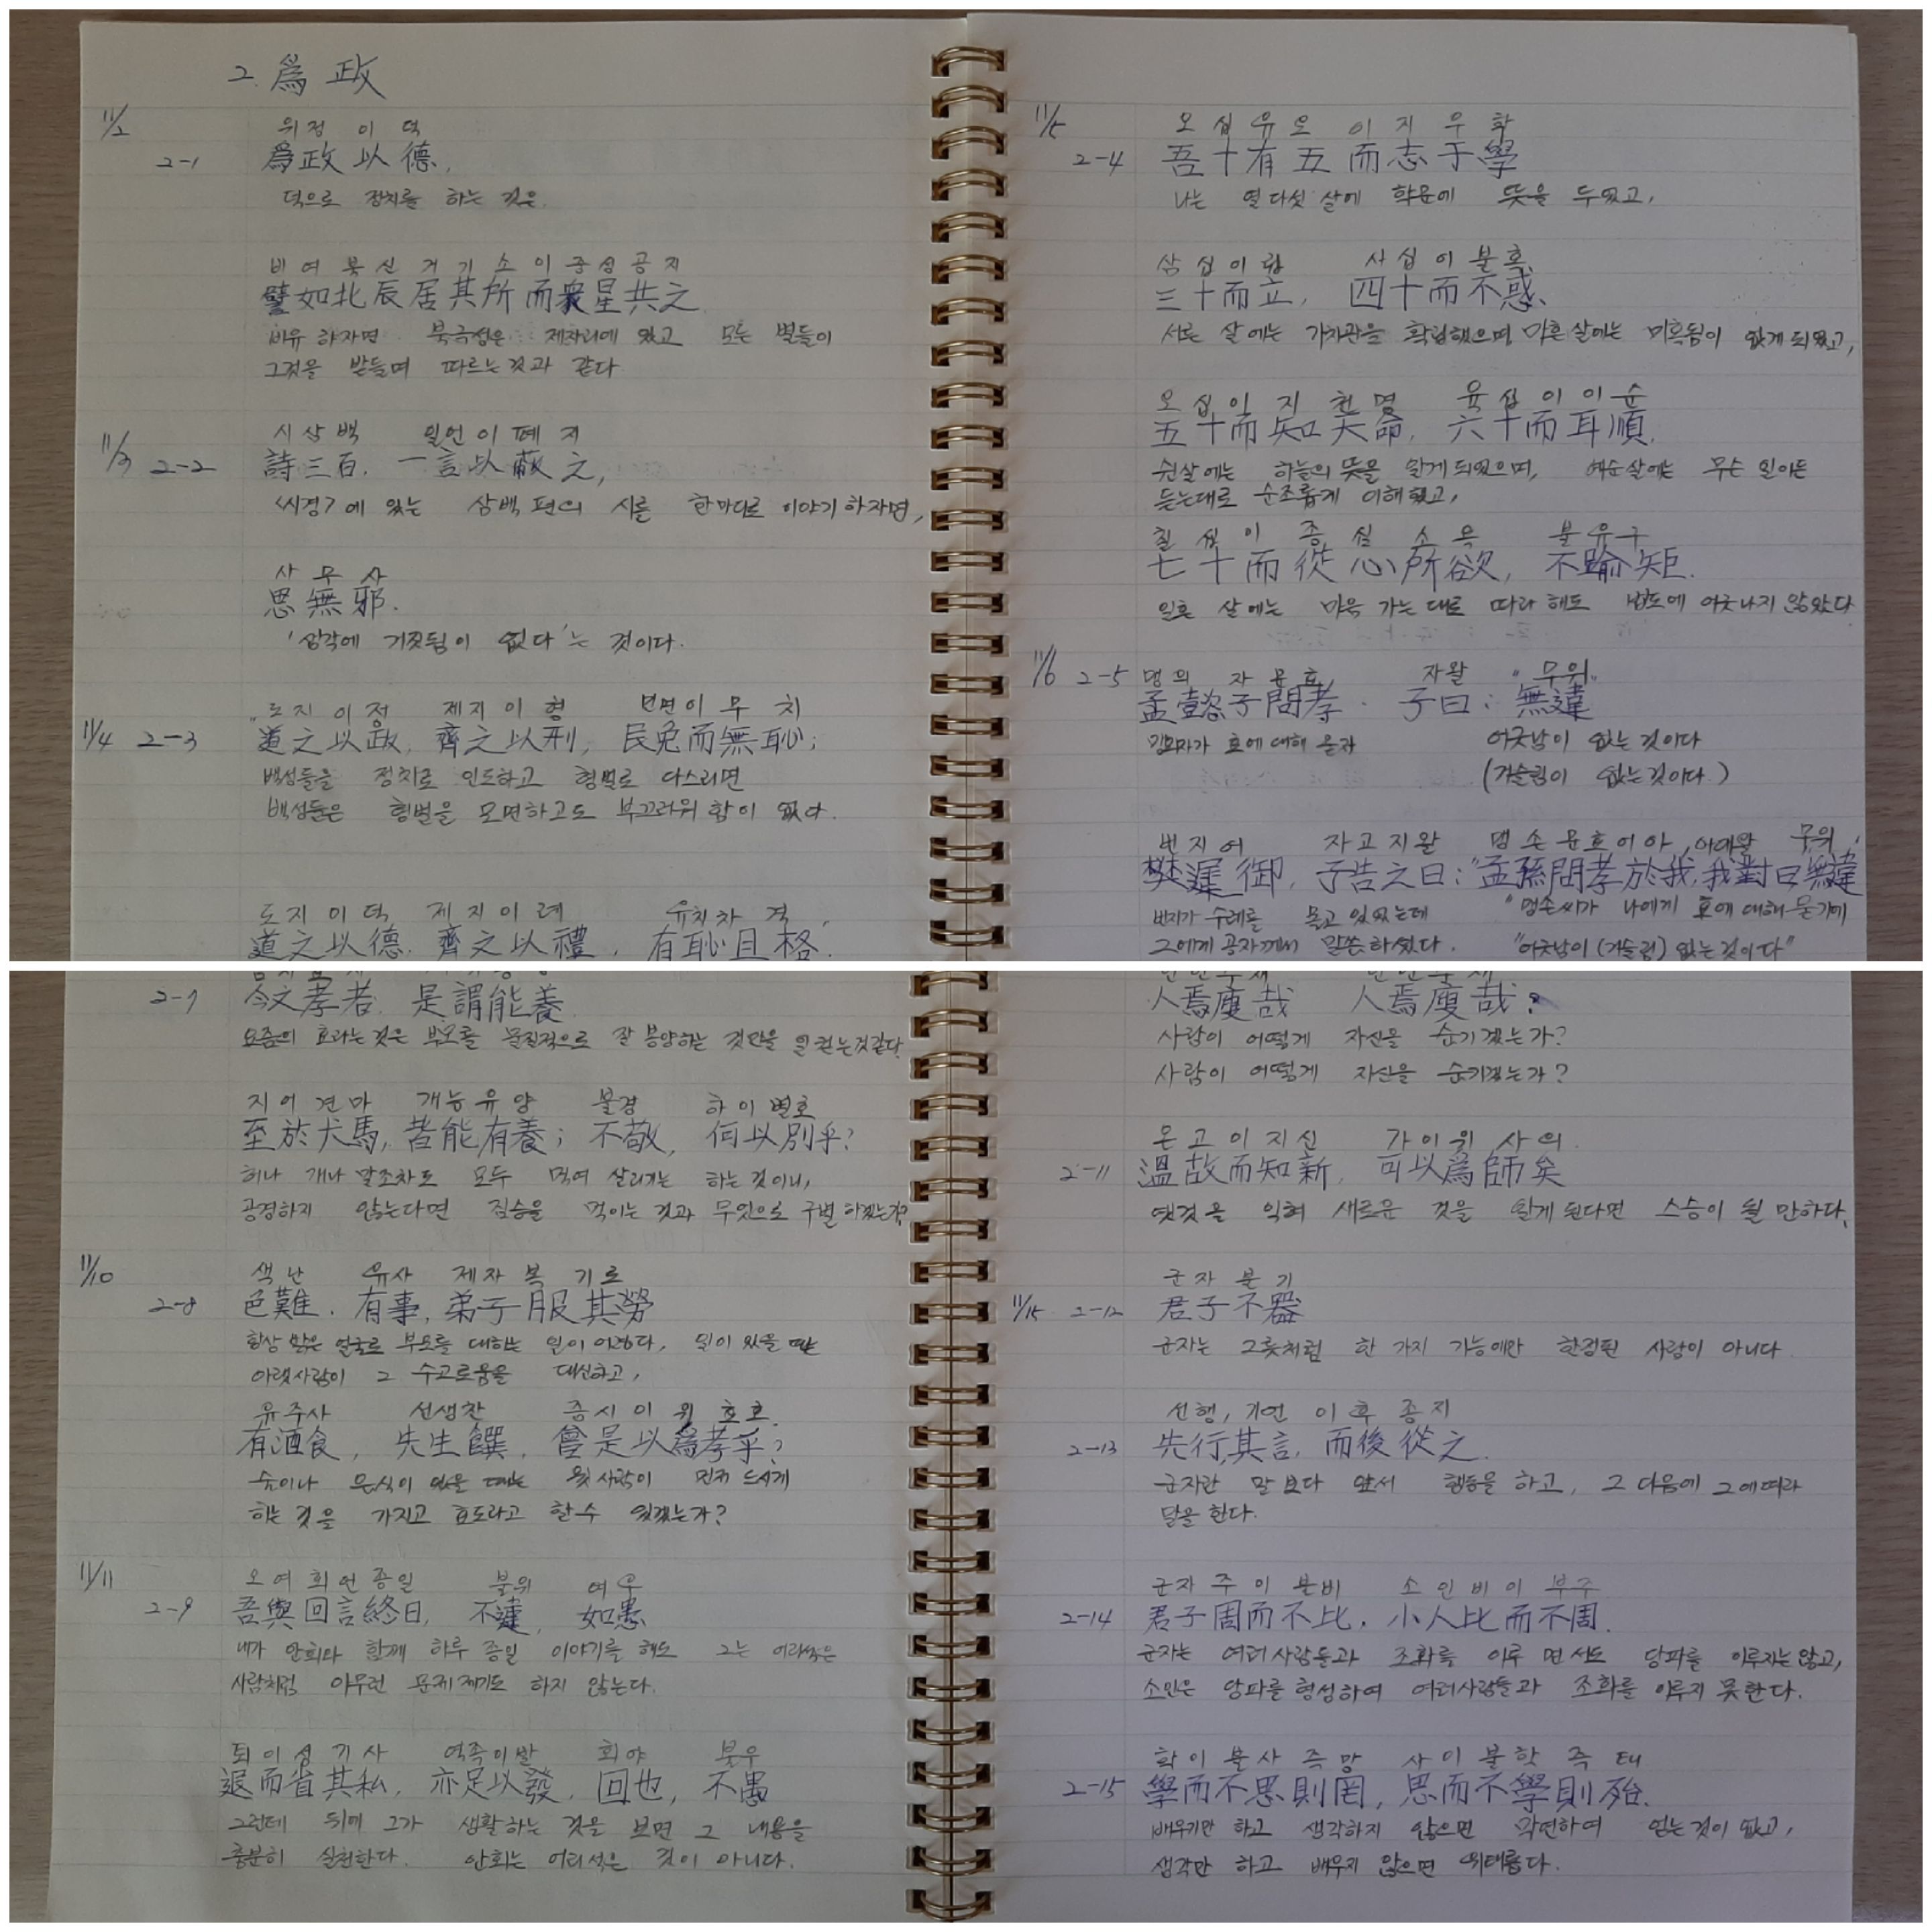 2. 爲政
11/2
위정 이 덕
2-1 爲政以德,
덕으로 정치를 하는 것은
비 여 북 신 거 기 소 이 중 성 공 지
譬如北辰居其所而衆星共之
비유 하자면 북극성은 제자리에 있고 모든 별들이
그것을 받들며 따르는 것과 같다
시삼백 일언이폐지
11/3 2-2 詩三百, 一言以蔽之,
<시경>에 있는 삼백 편의 시를 한마디로 이야기 하자면,
사 무 사
思無邪.
'생각에 거짓됨이 없다'는 것이다.
"도지이정 제지이형 민면이무치
11/4 2-3 道之以政, 齊之以刑, 民免而無恥;
백성들을 정치로 인도하고 형벌로 다스리면
백성들은 형벌을 모면하고도 부끄러워 함이 없다.
도지이덕 제지이례 유치차격
道之以德, 齊之以禮, 有恥且格.
11/5
오 십 유 오 이 지 우 학
2-4 吾十有五而志于學
나는 열다섯 살에 학문에 뜻을 두었고,
삼십이립 사십이불혹
三十而立, 四十而不惑,
서른 살에는 가치관을 확립했으며 마흔 살에는 미혹됨이 없게 되었고,
오십이지천명 육십이이순
五十而知天命, 六十而耳順,
쉰살에는 하늘의 뜻을 알게 되었으며, 예순살에는 무슨 일이든
듣는대로 순조롭게 이해했고,
칠십이종심소욕 불유구
七十而從心所欲, 不踰矩.
일흔 살에는 마음 가는 대로 따라 해도 법도에 어긋나지 않았다
11/6 2-5 맹의자문효 자왈 "무위"
孟懿子問孝. 子曰: 無違
효에 대해 묻자 어긋남이 없는 것이다
(거슬림이 없는 것이다.)
번지어 자고지왈 맹손문효어아, 아대왈 무위
樊遲御, 子告之曰: "孟孫問孝於我, 我對曰 '無違
번지가 수레를 몰고 있었는데 "맹손씨가 나에게 효에 대해 묻기에
그에게 공자께서 말씀 하셨다. "어긋남이 (거슬림) 없는 것이다"
2-7 今之孝者, 是謂能養
요즘의 효라는 것은 부모를 물질적으로 잘 봉양하는 것만을 일컫는것같다
지어견마 개능유양 불경 하이별호
至於犬馬, 皆能有養; 不敬, 何以別乎?
허나 개나 말조차도 모두 먹여 살리기는 하는 것이니,
공경하지 않는다면 짐승을 먹이는 것과 무엇으로 구별 하겠는가?
11/10
색난 유사 제자복기로
2-8 色難. 有事, 弟子服其勞
항상 밝은 얼굴로 부모를 대하는 일이 어렵다, 일이 있을 때는
아랫사람이 그 수고로움을 대신하고,
유주사 선생찬 증시이위효호
有酒食, 先生饌, 曾是以爲孝乎?
술이나 음식이 있을 때는 윗사람이 먼저 드시게
하는 것을 가지고 효도라고 할수 있겠는가?
11/11
오여회언종일 불위 여우
2-9 吾與回言終日, 不違, 如愚
내가 안회와 함께 하루 종일 이야기를 해도 그는 어리석은
사람처럼 아무런 문제 제기도 하지 않는다.
퇴이성기사 역족이발 회야 불우
退而省其私, 亦足以發, 回也, 不愚
그런데 뒤에 그가 생활하는 것을 보면 그 내용을
충분히 실천한다. 안회는 어리석은 것이 아니다.
人焉廋哉 人焉廋哉?
사람이 어떻게 자신을 숨기겠는가?
사람이 어떻게 자신을 숨기겠는가?
온고이지신 가이위사의
2-11 溫故而知新, 可以爲師矣
옛것을 익혀 새로운 것을 알게 된다면 스승이 될 만하다.
군자불기
11/15 2-12 君子不器
군자는 그릇처럼 한 가지 기능에만 한정된 사람이 아니다.
선행, 기언 이후종지
2-13 先行, 其言, 而後從之.
군자란 말 보다 앞서 행동을 하고, 그 다음에 그에따라
말을 한다.
군자주이불비 소인비이부주
2-14 君子周而不比, 小人比而不周.
군자는 여러사람들과 조화를 이루 면서도 당파를 이루지는 않고,
소인은 당파를 형성하여 여러사람들과 조화를 이루지 못한다.
학이불사즉망 사이불학즉태
2-15 學而不思則罔, 思而不學則殆.
배우기만 하고 생각하지 않으면 막연하여 얻는것이 없고,
생각만 하고 배우지 않으면 위태롭다.